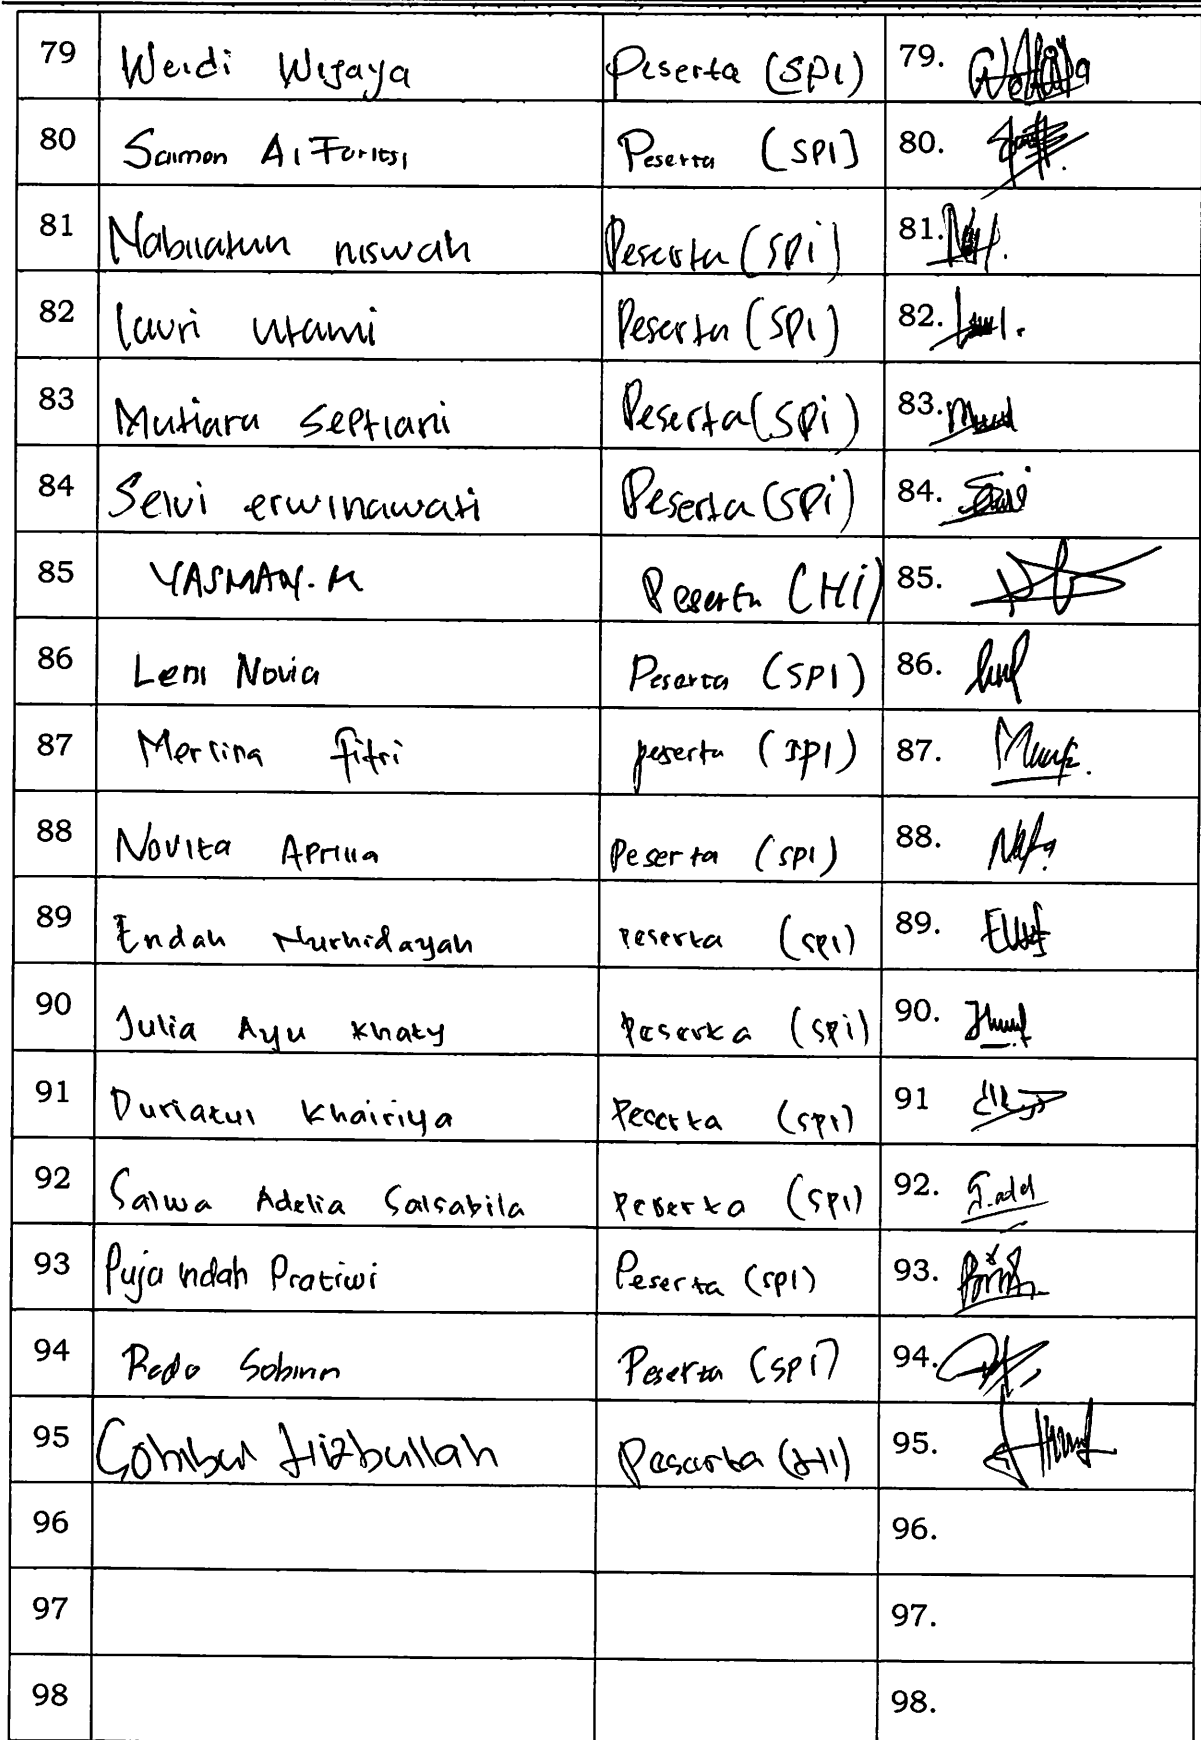 79 Weldi Wijaya Peserta (SPI) 79.
80 Salmon Al Faritsi Peserta (SPI) 80.
81 Nabilatun niswah Peserta (SPi) 81.
82 lauri utami Peserta (SPi) 82.
83 Mutiara Septiani Peserta (SPi) 83.
84 Selvi erwinawati Peserta (SPi) 84.
85 YASMAN. M Peserta (Hi) 85.
86 Leni Novia Peserta (SPI) 86.
87 Merlina fitri peserta (SPI) 87.
88 Novita Aprilia Peserta (SPI) 88.
89 Endah Nurhidayah Peserta (SPI) 89.
90 Julia Ayu Khaty Peserta (SPi) 90.
91 Duriatul Khairiya Peserta (SPI) 91
92 Salwa Adelia Salsabila Peserta (SPI) 92. S.adel
93 Puja Indah Pratiwi Peserta (SPI) 93.
94 Redo Peserta (SPI) 94.
95 Hizbullah Peserta (HI) 95.
96 96.
97 97.
98 98.